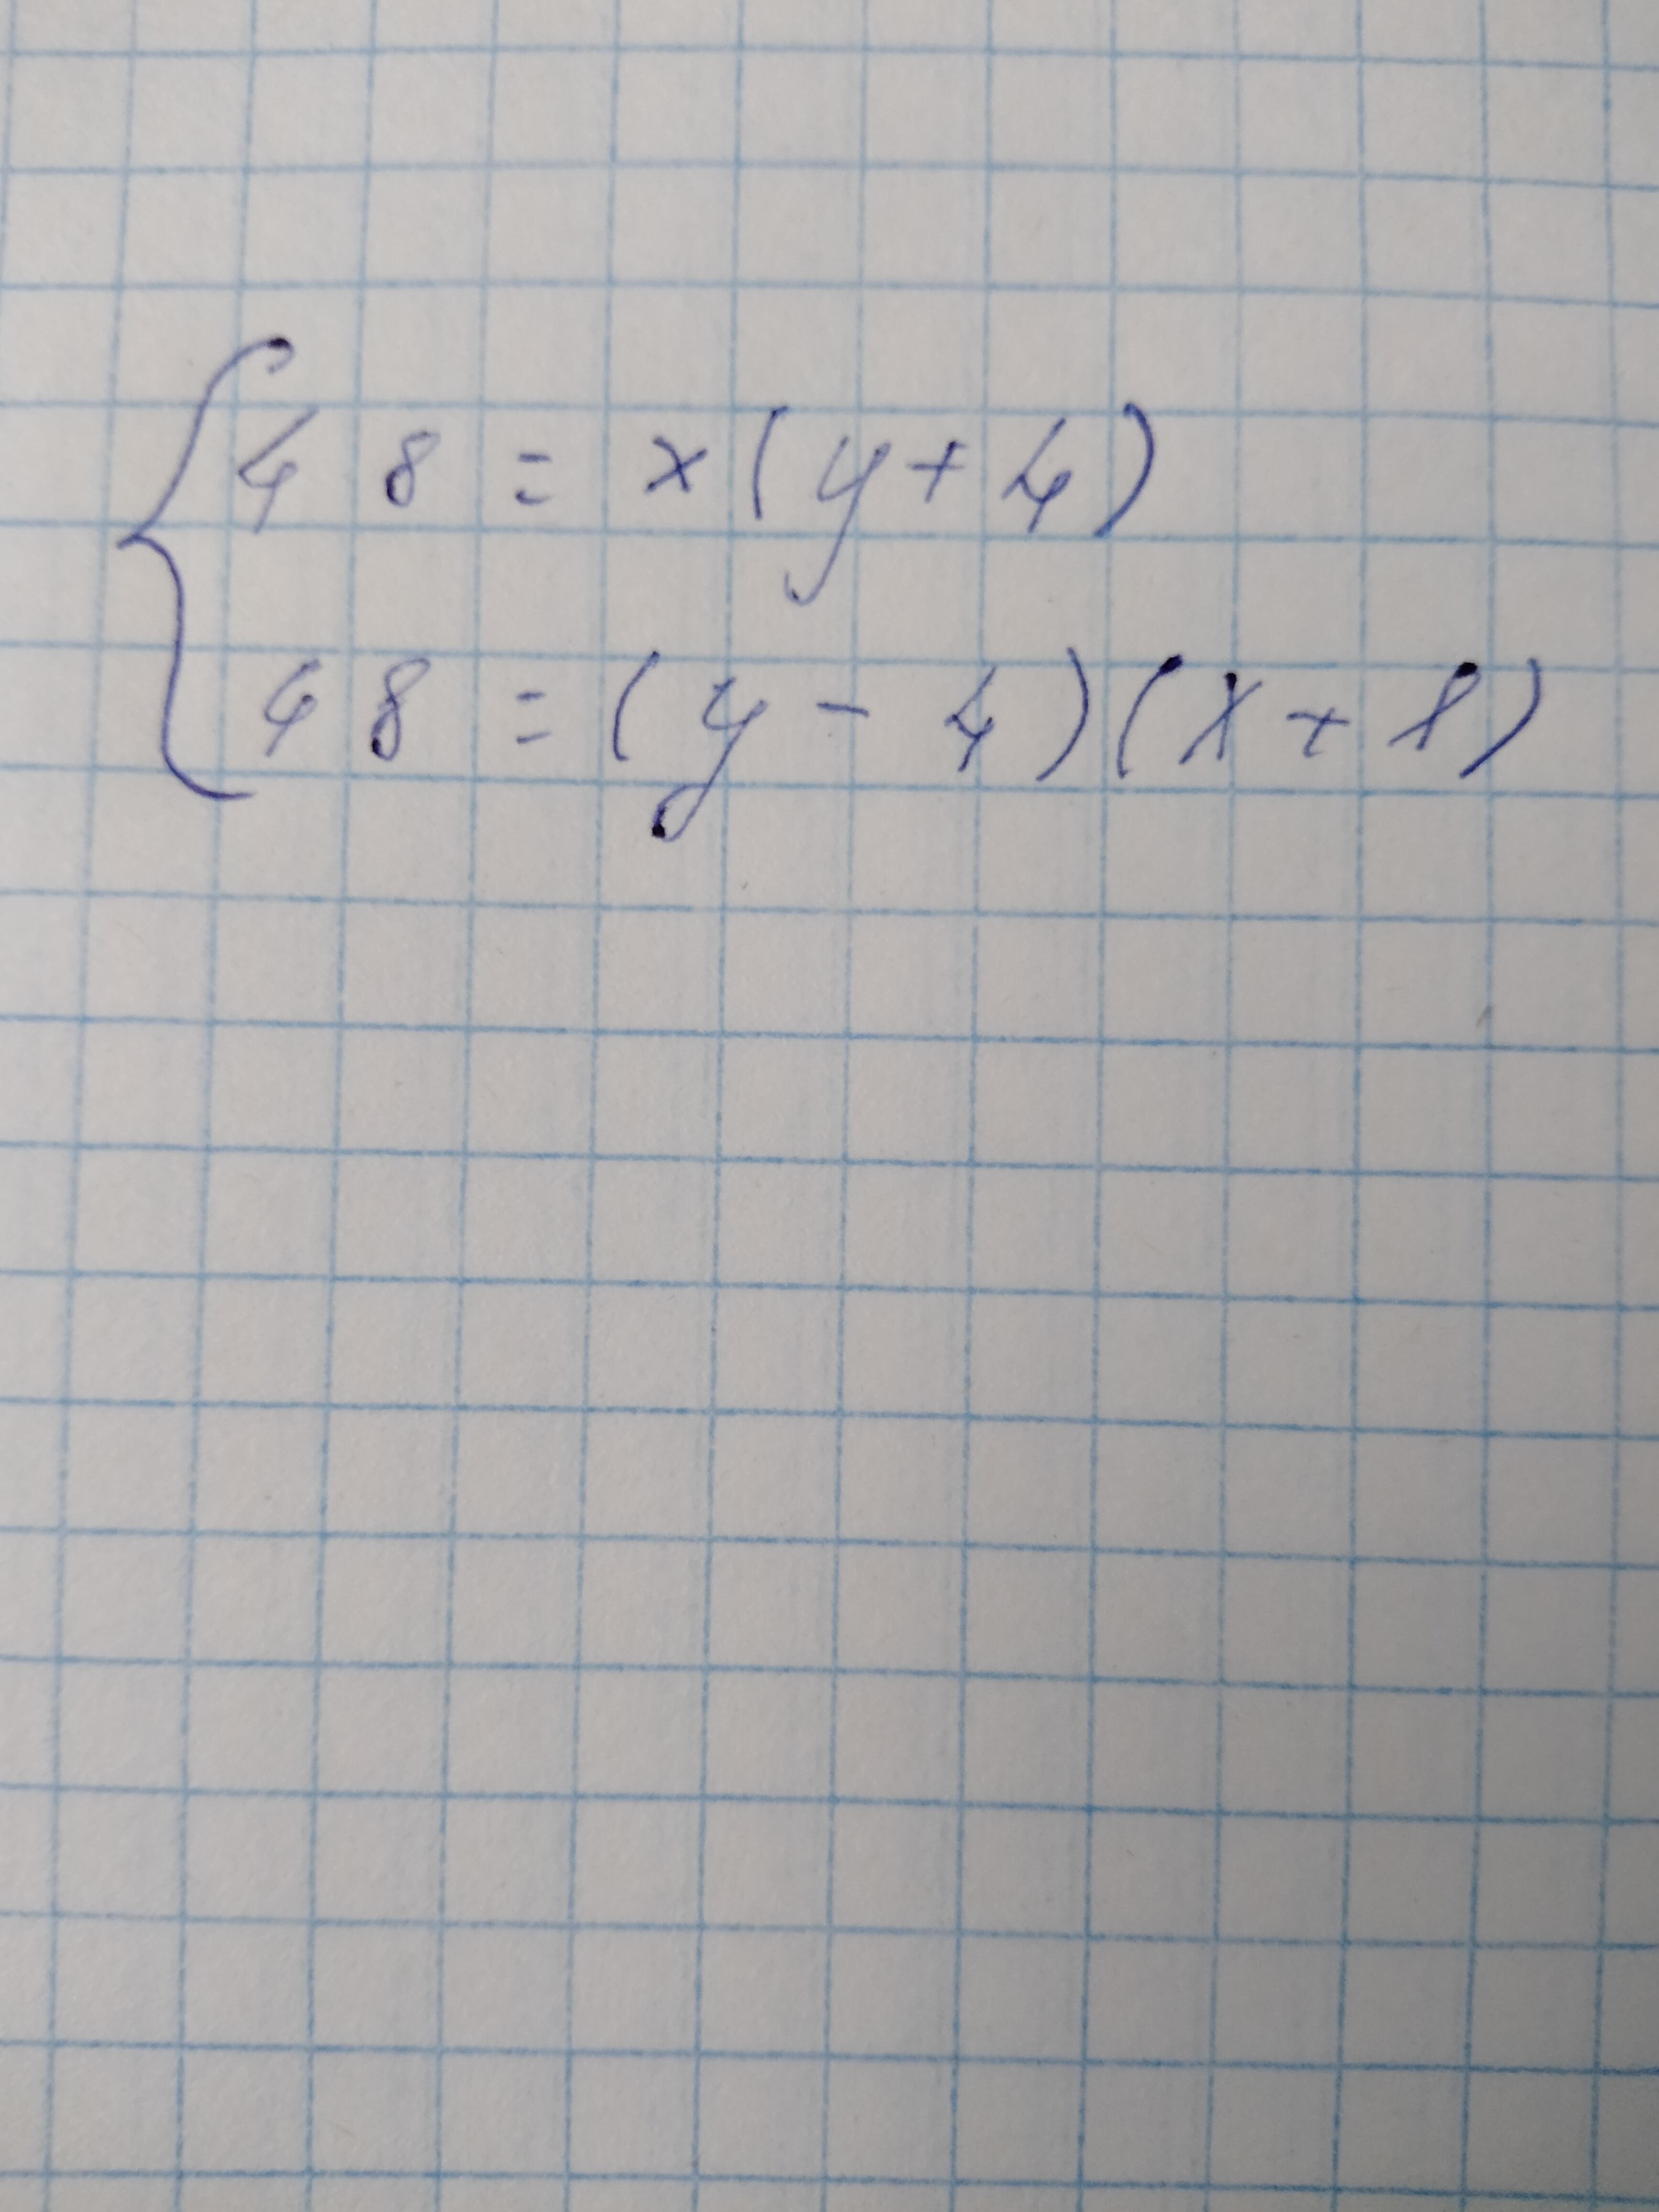 48 = x(y+4)
48 = (y-4)(x+8)